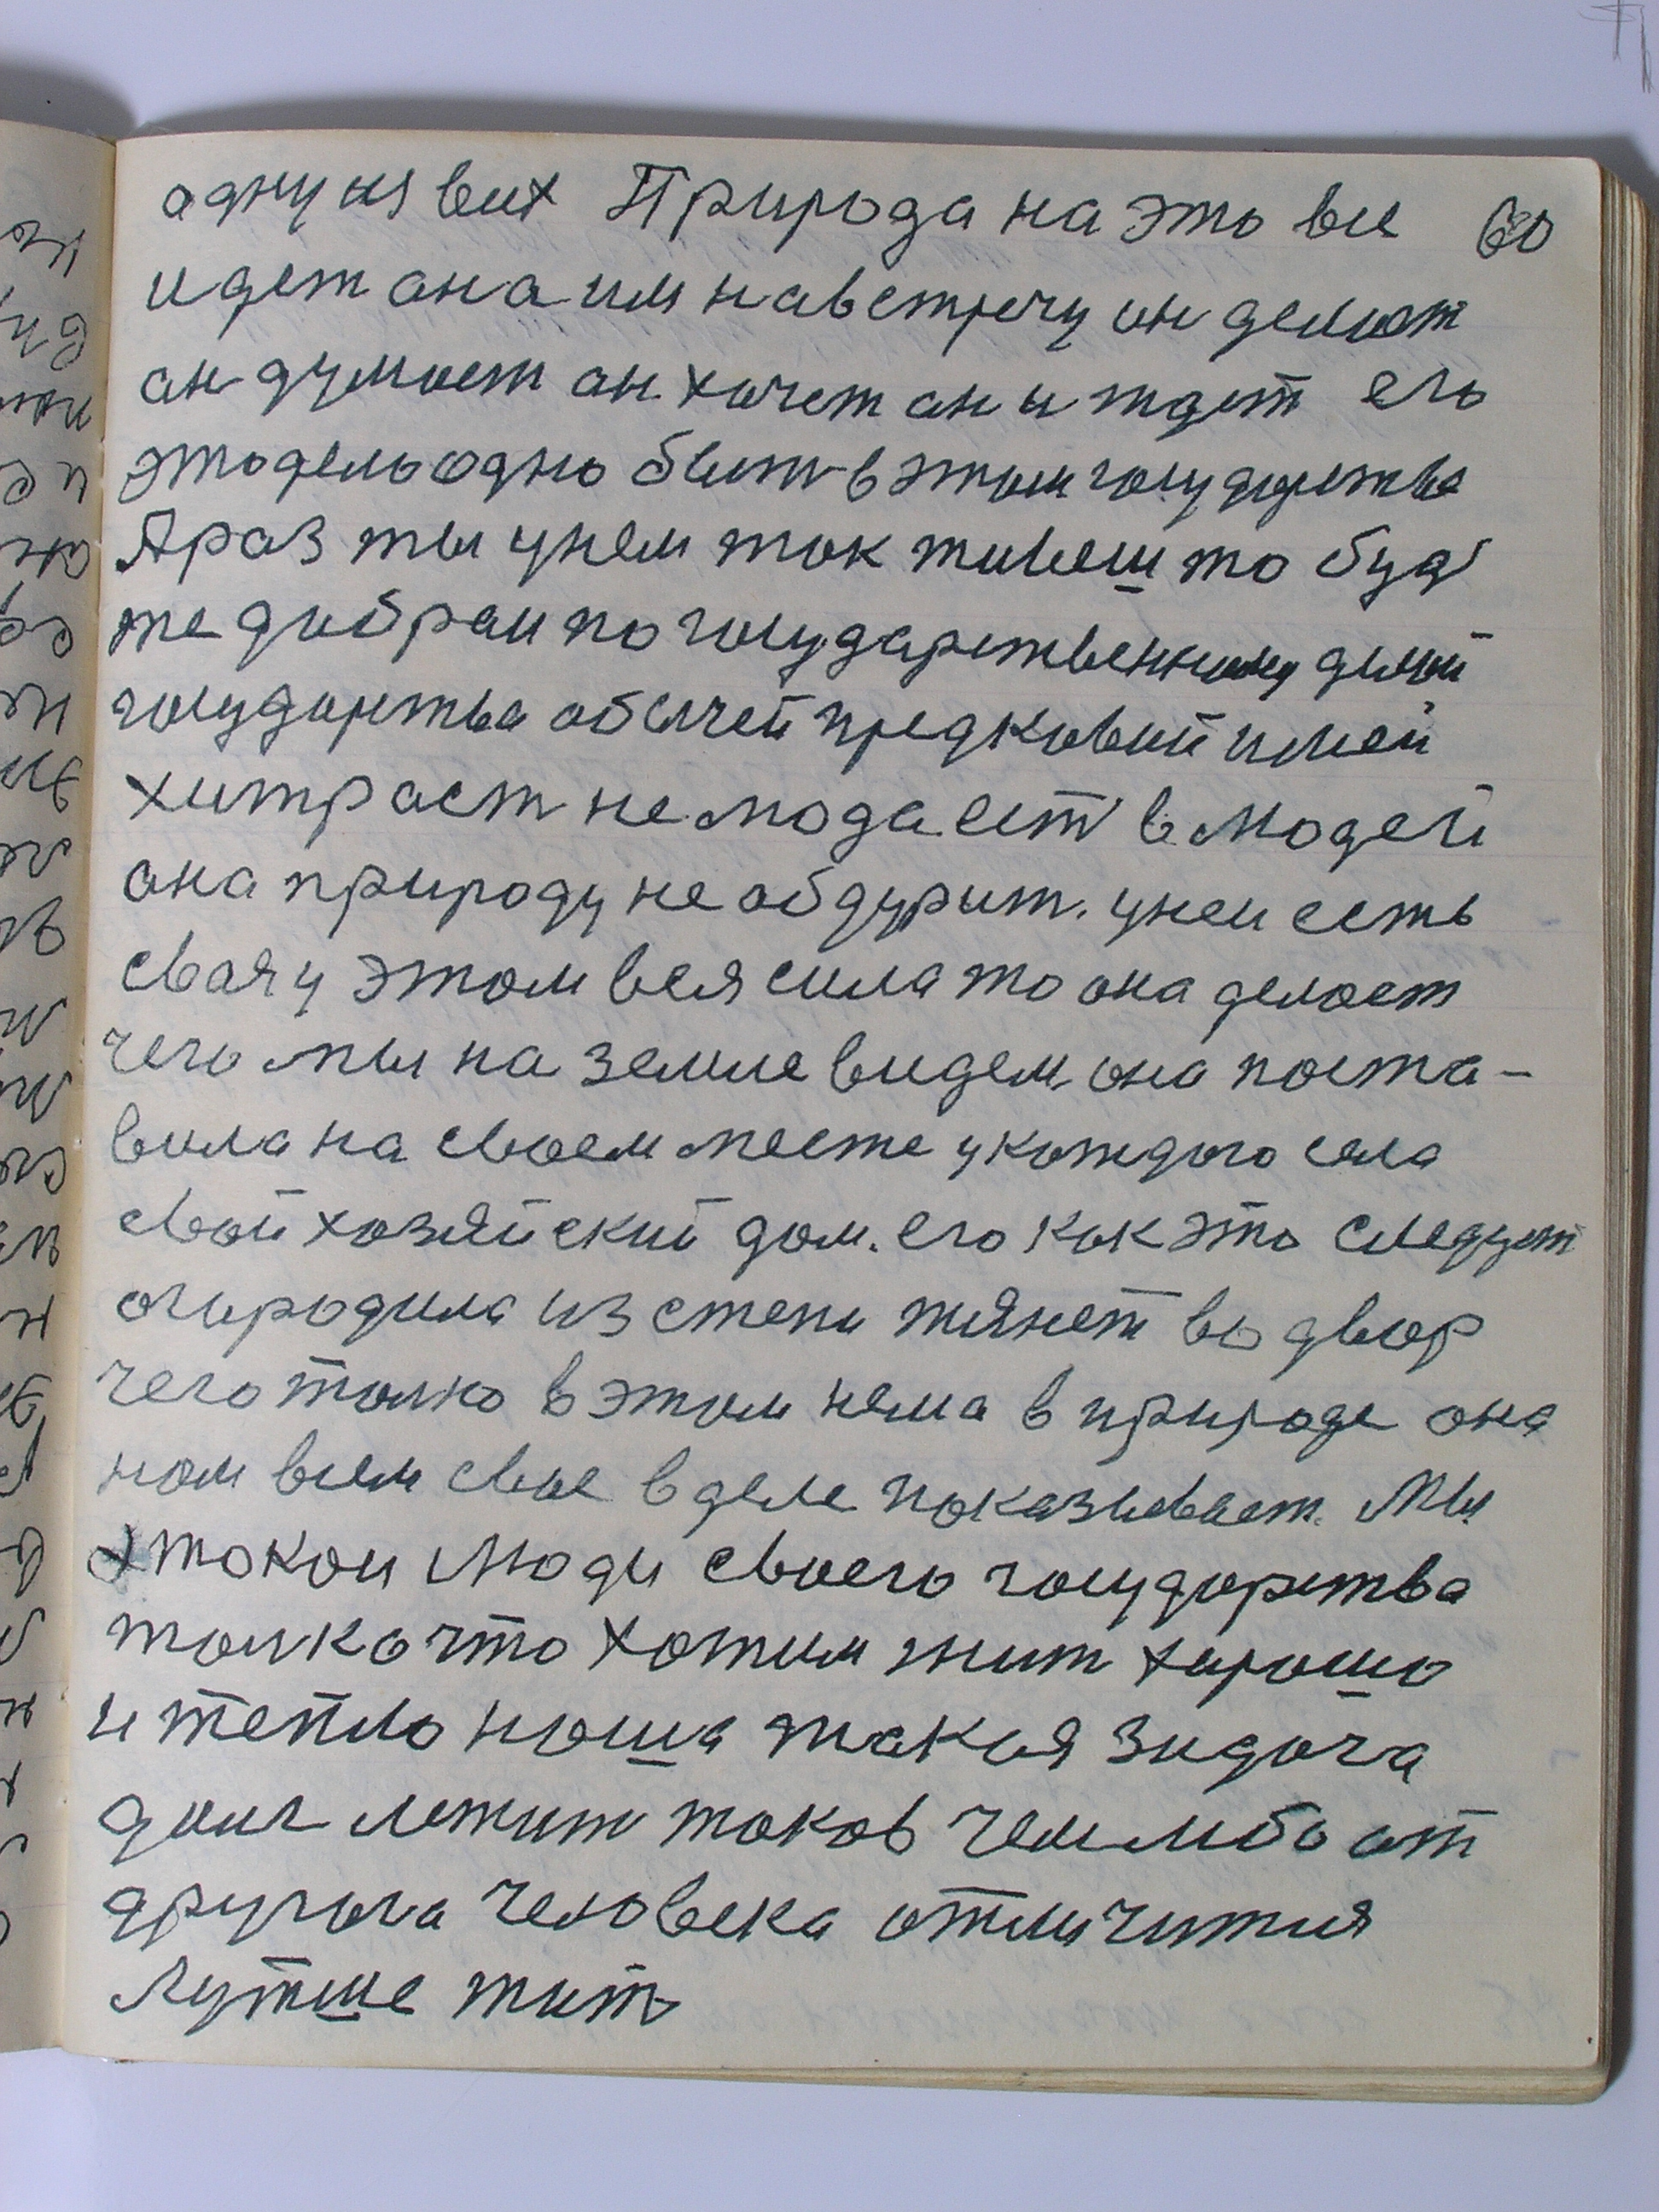 адну из вих Природа на это все 60
идет ана им навстречу он делает
он думает он хочет он и ждет его
это дело одно быт в этом государстве
А раз ты у нем так живеш то буд
же добрам по государственному делай
государства обычей предковий имей
хитраст не люда ест в людей
она природу не абдурит. у ней есть
свая у этом вся сила то она делает
чего мы на земле видем. она поста-
вила на своем месте у каждого села
свой хозяйский дом. его как это следует
агародила из степи тянет во двор
чего толко в этом нема в природе она
нам всем свое в деле показывает. Мы
такои люди своего государства
толко что хотим жит хорошо
и тепло наша такая задача
лежит таков чем либо от
другога человека отличится
Лутше жит